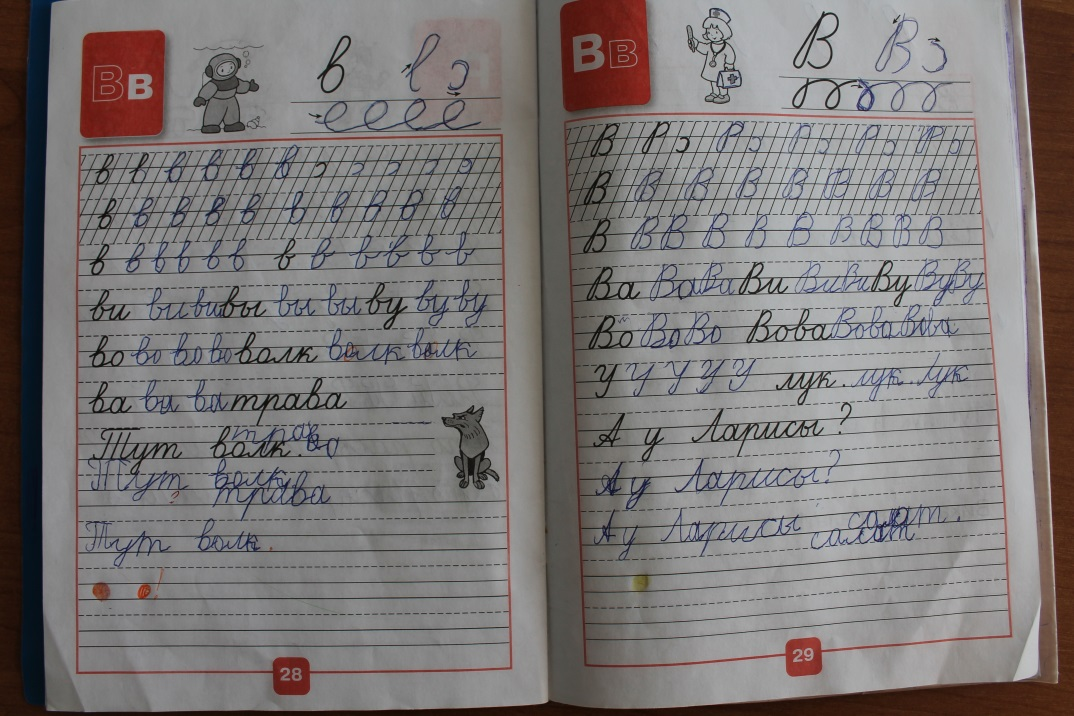 Вв
в
в в в в в в
в в в в в в в в в в
в в в в в в в в в в в в
ви ви ви вы вы вы ву ву ву
во во во во волк волк волк
ва ва ва трава
трава
Тут волк.
Тут волк
трава
Тут волк.
28
Вв
В В
В Р Р Р Р Р
В В В В В В В В
В В В В В В В В В В
Ва Ва Ва Ви Ви Ви Ву Ву Ву
Во Во Во Вова Вова Вова
У У У У У лук. лук. лук
А у Ларисы?
А у Ларисы?
А у Ларисы салат.
салат
29